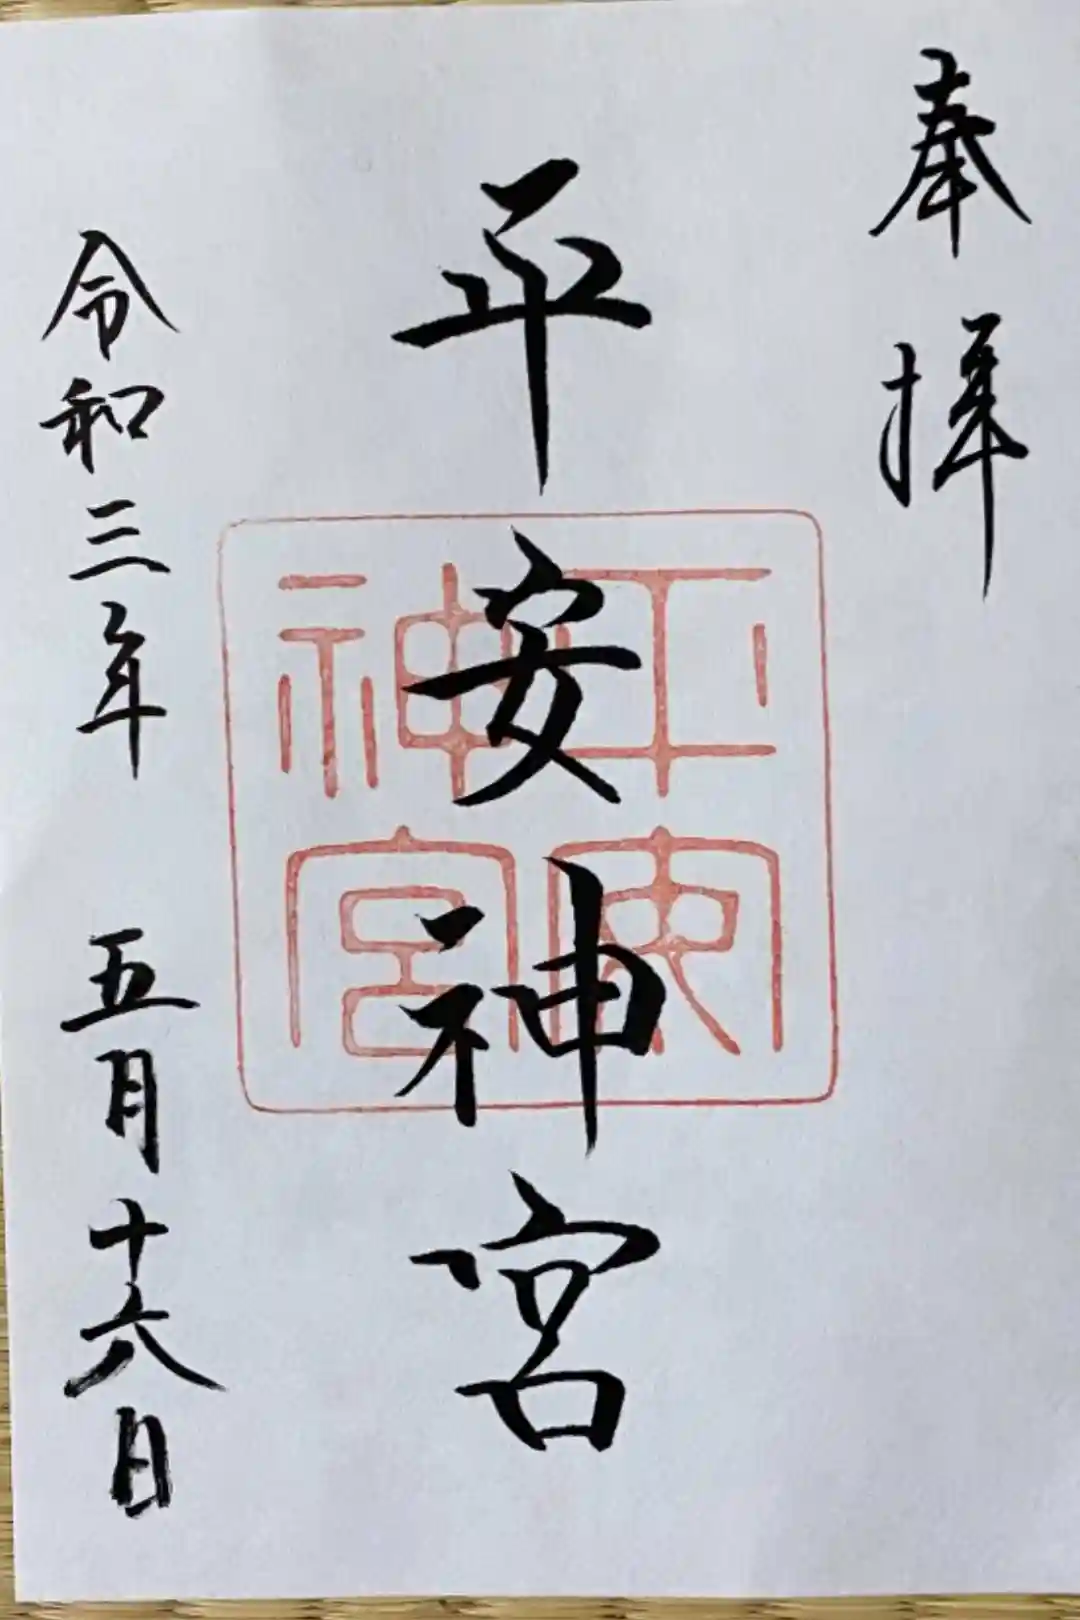 奉拝
平安神宮
平安
神宮
令和三年 五月十六日